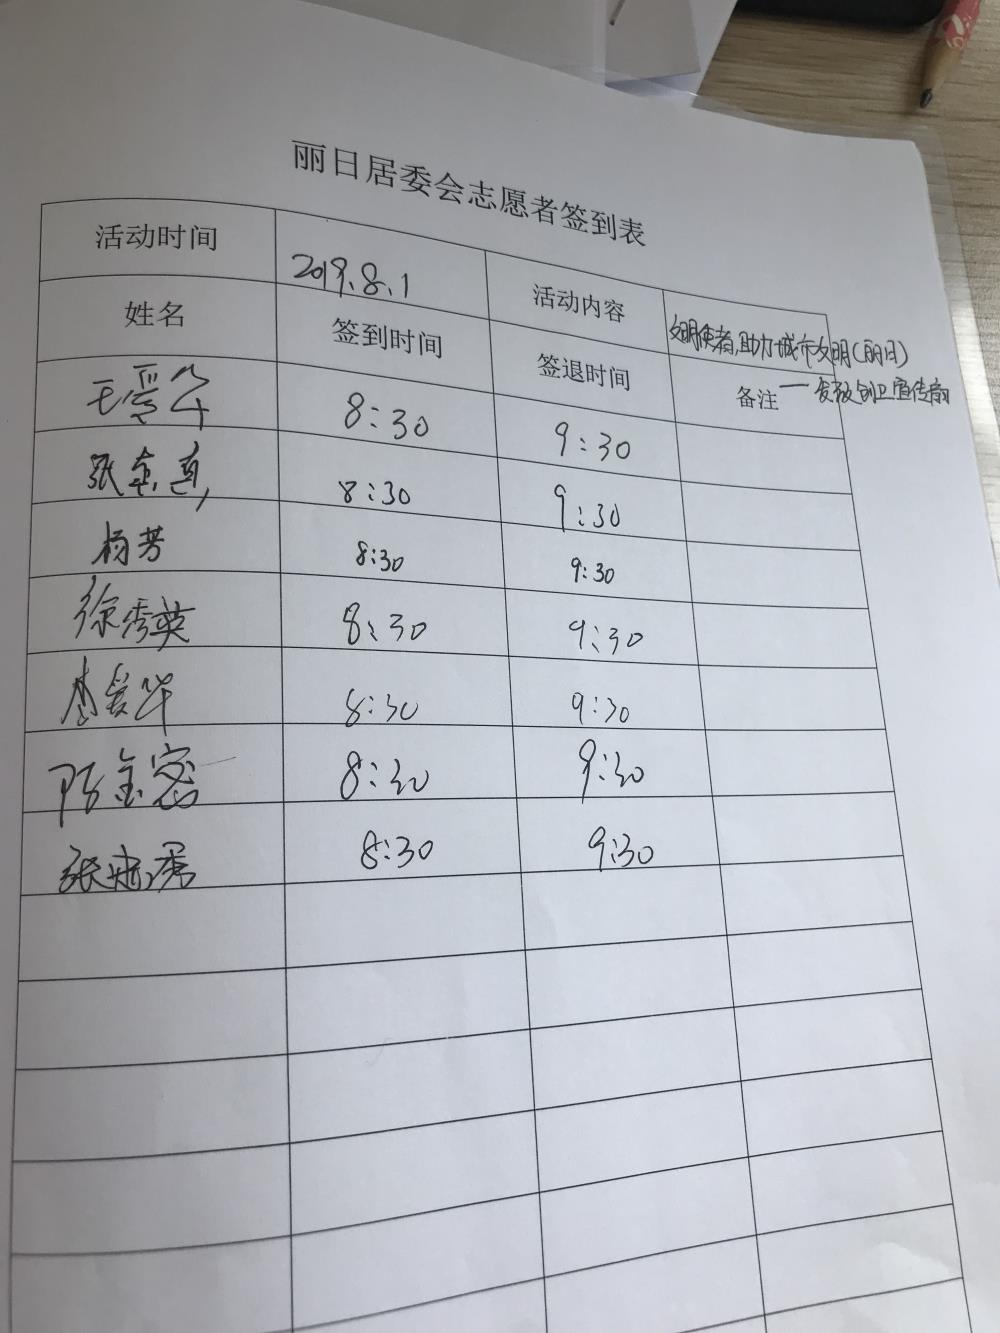 丽日居委会志愿者签到表
活动时间 2019.8.1 活动内容 文明使者,助力城市文明(丽日)
一发放创卫宣传扇
姓名 签到时间 签退时间 备注
8:30 9:30
张 8:30 9:30
杨芳 8:30 9:30
徐秀英 8:30 9:30
李爱华 8:30 9:30
陈金 8:30 9:30
张 8:30 9:30